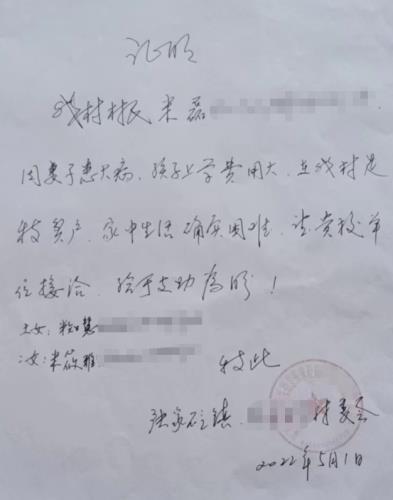 证明
我村村民 米磊
因妻子患大病、孩子上学费用大、在我村是
特贫户、家中生活确实困难、请贵校单
位接洽、给于支助为盼！
长女：米如慧
二女：米筱雅
特此
张家砭镇 村委会
2022年5月1日